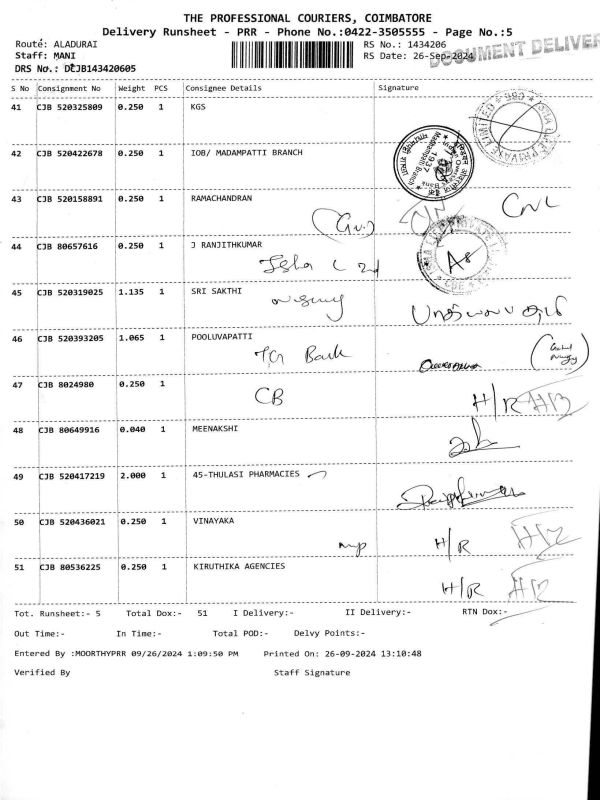 THE PROFESSIONAL COURIERS, COIMBATORE
Delivery Runsheet - PRR - Phone No.:0422-3505555 - Page No.:5
Route: ALADURAI RS No.: 1434206
Staff: MANI RS Date: 26-Sep-2024
DOCUMENT DELIVER
DRS No.: DCJB143420605
S No Consignment No Weight PCS Consignee Details Signature
41 CJB 520325809 0.250 1 KGS
42 CJB 520422678 0.250 1 IOB/ MADAMPATTI BRANCH
1937
43 CJB 520158891 0.250 1 RAMACHANDRAN
44 CJB 80657616 0.250 1 J RANJITHKUMAR
Isha
45 CJB 520319025 1.135 1 SRI SAKTHI
46 CJB 520393205 1.065 1 POOLUVAPATTI
47 CJB 8024980 0.250 1
CB H/R
48 CJB 80649916 0.040 1 MEENAKSHI
49 CJB 520417219 2.000 1 45-THULASI PHARMACIES
50 CJB 520436021 0.250 1 VINAYAKA
H/R
51 CJB 80536225 0.250 1 KIRUTHIKA AGENCIES
H/R
Tot. Runsheet:- 5 Total Dox:- 51 I Delivery:- II Delivery:- RTN Dox:-
Out Time:- In Time:- Total POD:- Delvy Points:-
Entered By :MOORTHYPRR 09/26/2024 1:09:50 PM Printed On: 26-09-2024 13:10:48
Verified By Staff Signature